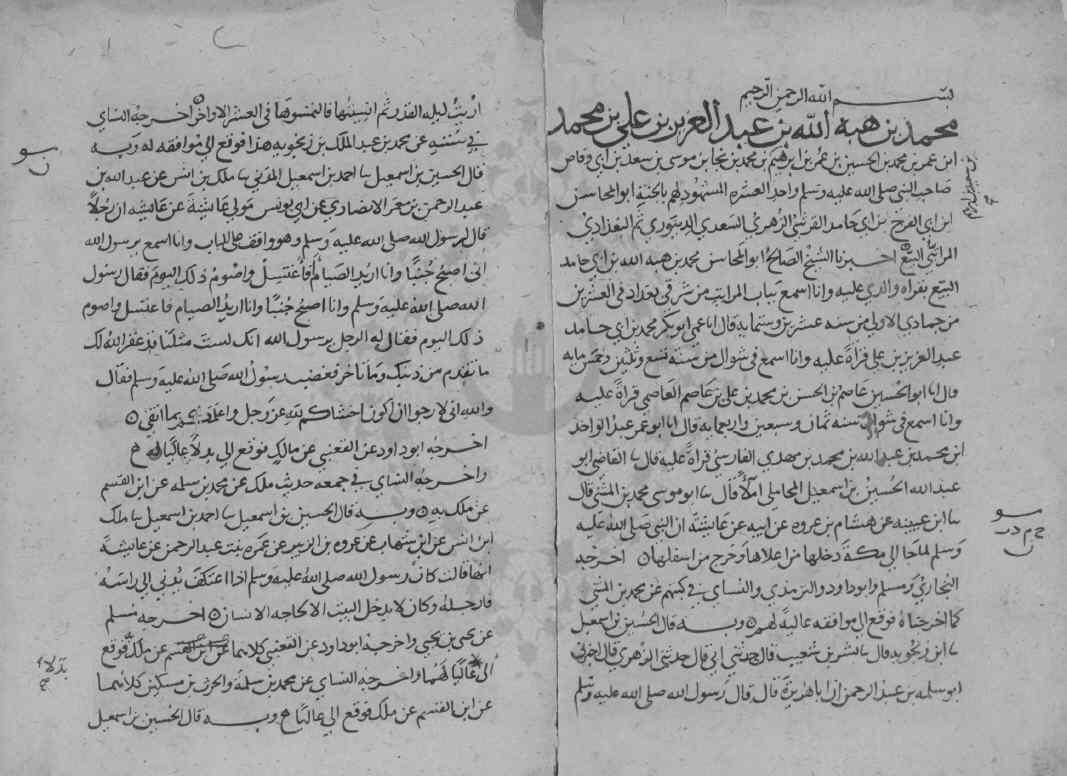 بسم الله الرحمن الرحيم
محمد بن هبة الله بن عبد العزيز بن علي بن محمد
ابن عمر بن محمد بن الحسين بن عمر بن ابرهيم بن محمد بن نجا بن موسى بن سعد بن ابي وقاص
صاحب النبي صلى الله عليه وسلم واحد العشرة المشهود لهم بالجنة ابو المحاسن
ابن ابي الفرج بن ابي حامد القرشي الزهري السعدي الدينوري ثم البغدادي
المراتبي البيع اخبرنا الشيخ الصالح ابو المحاسن محمد بن هبة الله بن ابي حامد
البيع بقراة والدي عليه وانا اسمع بباب المراتب من شرقي بغداد في العشرين
من جمادي الاولى من سنة عشرين وستماية قال انا عمي ابو بكر محمد بن ابي حامد
عبد العزيز بن علي قراة عليه وانا اسمع في شوال من سنة تسع وثلثين وخمس مايه
قال انا ابو الحسين عاصم بن الحسن بن محمد بن علي بن عاصم العاصمي قراة عليه
وانا اسمع في شوال سنة ثمان وسبعين واربعمايه قال انا ابو عمر عبد الواحد
ابن محمد بن عبد الله بن محمد بن مهدي الفارسي قراة عليه قال ثنا القاضي ابو
عبد الله الحسين بن اسمعيل المحاملي املا قال ثنا ابو موسى محمد بن المثنى قال
ثنا ابن عيينه عن هشام بن عروه عن ابيه عن عايشة ان النبي صلى الله عليه
وسلم لما جا الى مكة دخلها من اعلاها وخرج من اسفلها اخرجه
البخاري ومسلم وابو داود والترمذي والنساي في كتبهم عن محمد بن المثنى
كما اخرجناه فوقع لي موافقه عالية لهم وبه قال الحسين بن اسمعيل
ثنا ابن زنجويه قال ثنا بشر بن شعيب قال حدثني ابي قال حدثني الزهري قال اخبرني
ابو سلمه بن عبد الرحمن ان ابا هريرة قال قال رسول الله صلى الله عليه وسلم
اريت ليله القدر ثم انسيتها فالتمسوها في العشر الاواخر اخرجه النساي
في سننه عن محمد بن عبد الملك بن زنجويه هذا فوقع لي موافقه له وبه
قال الحسين بن اسمعيل ثنا احمد بن اسمعيل المدني ثنا ملك بن انس عن عبد الله بن
عبد الرحمن بن معمر الانصاري عن ابي يونس مولي عايشة عن عايشه ان رجلا
قال لرسول الله صلى الله عليه وسلم وهو واقف على الباب وانا اسمع يرسول الله
اني اصبح جنبا وانا اريد الصيام فاغتسل واصوم ذلك اليوم فقال رسول
الله صلى الله عليه وسلم وانا اصبح جنبا وانا اريد الصيام فاغتسل واصوم
ذلك اليوم فقال له الرجل يرسول الله انك لست مثلنا قد غفر الله لك
ما تقدم من ذنبك وما تاخر فغضب رسول الله صلى الله عليه وسلم فقال
والله اني لارجوا ان اكون اخشاكم لله عز وجل واعلمكم بما اتقي
اخرجه ابو داود عن القعنبي عن مالك فوقع لي بدلا عاليا
واخرجه النساي في جمعه حديث ملك عن محمد بن سلمه عن ابن القسم
عن ملك به وبه قال الحسين بن اسمعيل ثنا احمد بن اسمعيل ثنا ملك
ابن انس عن ابن شهاب عن عروه بن الزبير عن عمره بنت عبد الرحمن عن عايشة
انها قالت كان رسول الله صلى الله عليه وسلم اذا اعتكف يدني الي راسه
فارجله وكان لا يدخل البيت الا لحاجه الانسان اخرجه مسلم
عن يحيى بن يحيى واخرجه ابو داود عن القعنبي كلاهما عن ملك فوقع
الي عاليا لهما واخرجه النساي عن محمد بن سلمة والحرث بن مسكين كلاهما
عن ابن القسم عن ملك فوقع لي عاليا وبه قال الحسين بن اسمعيل